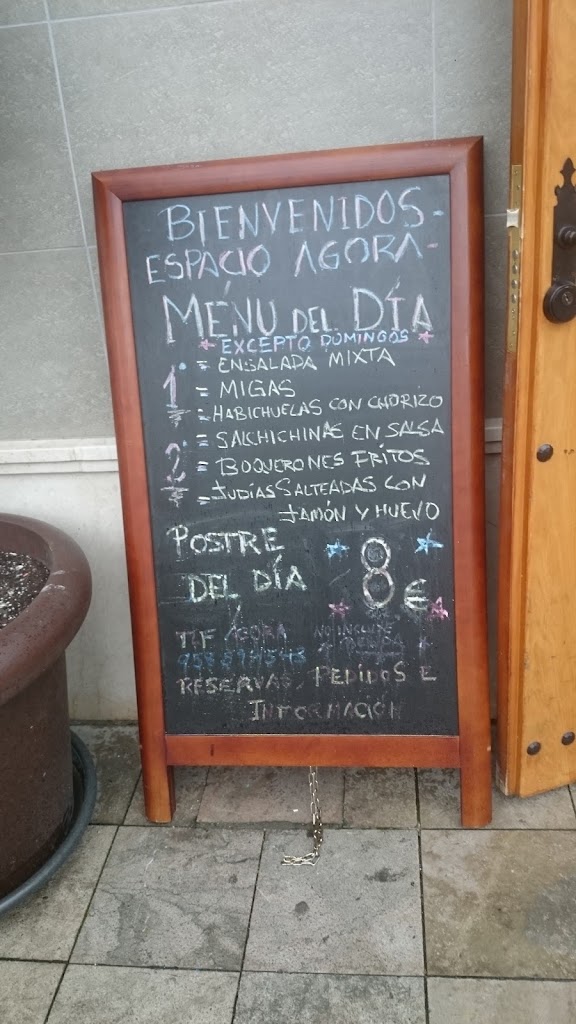 BIENVENIDOS-
ESPACIO AGORA-
MENÚ DEL DÍA
* EXCEPTO DOMINGOS *
1º = ENSALADA MIXTA
= MIGAS
= HABICHUELAS CON CHORIZO
2º = SALCHICHINAS EN SALSA
= BOQUERONES FRITOS
= JUDÍAS SALTEADAS CON
JAMÓN Y HUEVO
POSTRE
DEL DÍA
8 €
TLF AGORA
NO INCLUYE
RESERVAS, PEDIDOS E
INFORMACIÓN